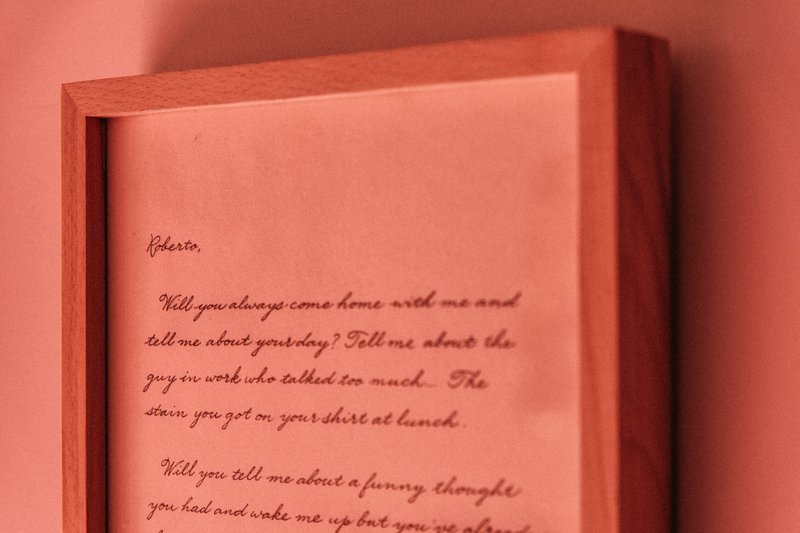 Roberto,
Will you always come home with me and
tell me about your day? Tell me about the
guy in work who talked too much... The
stain you got on your shirt at lunch.
Will you tell me about a funny thought
you had and wake me up but you've